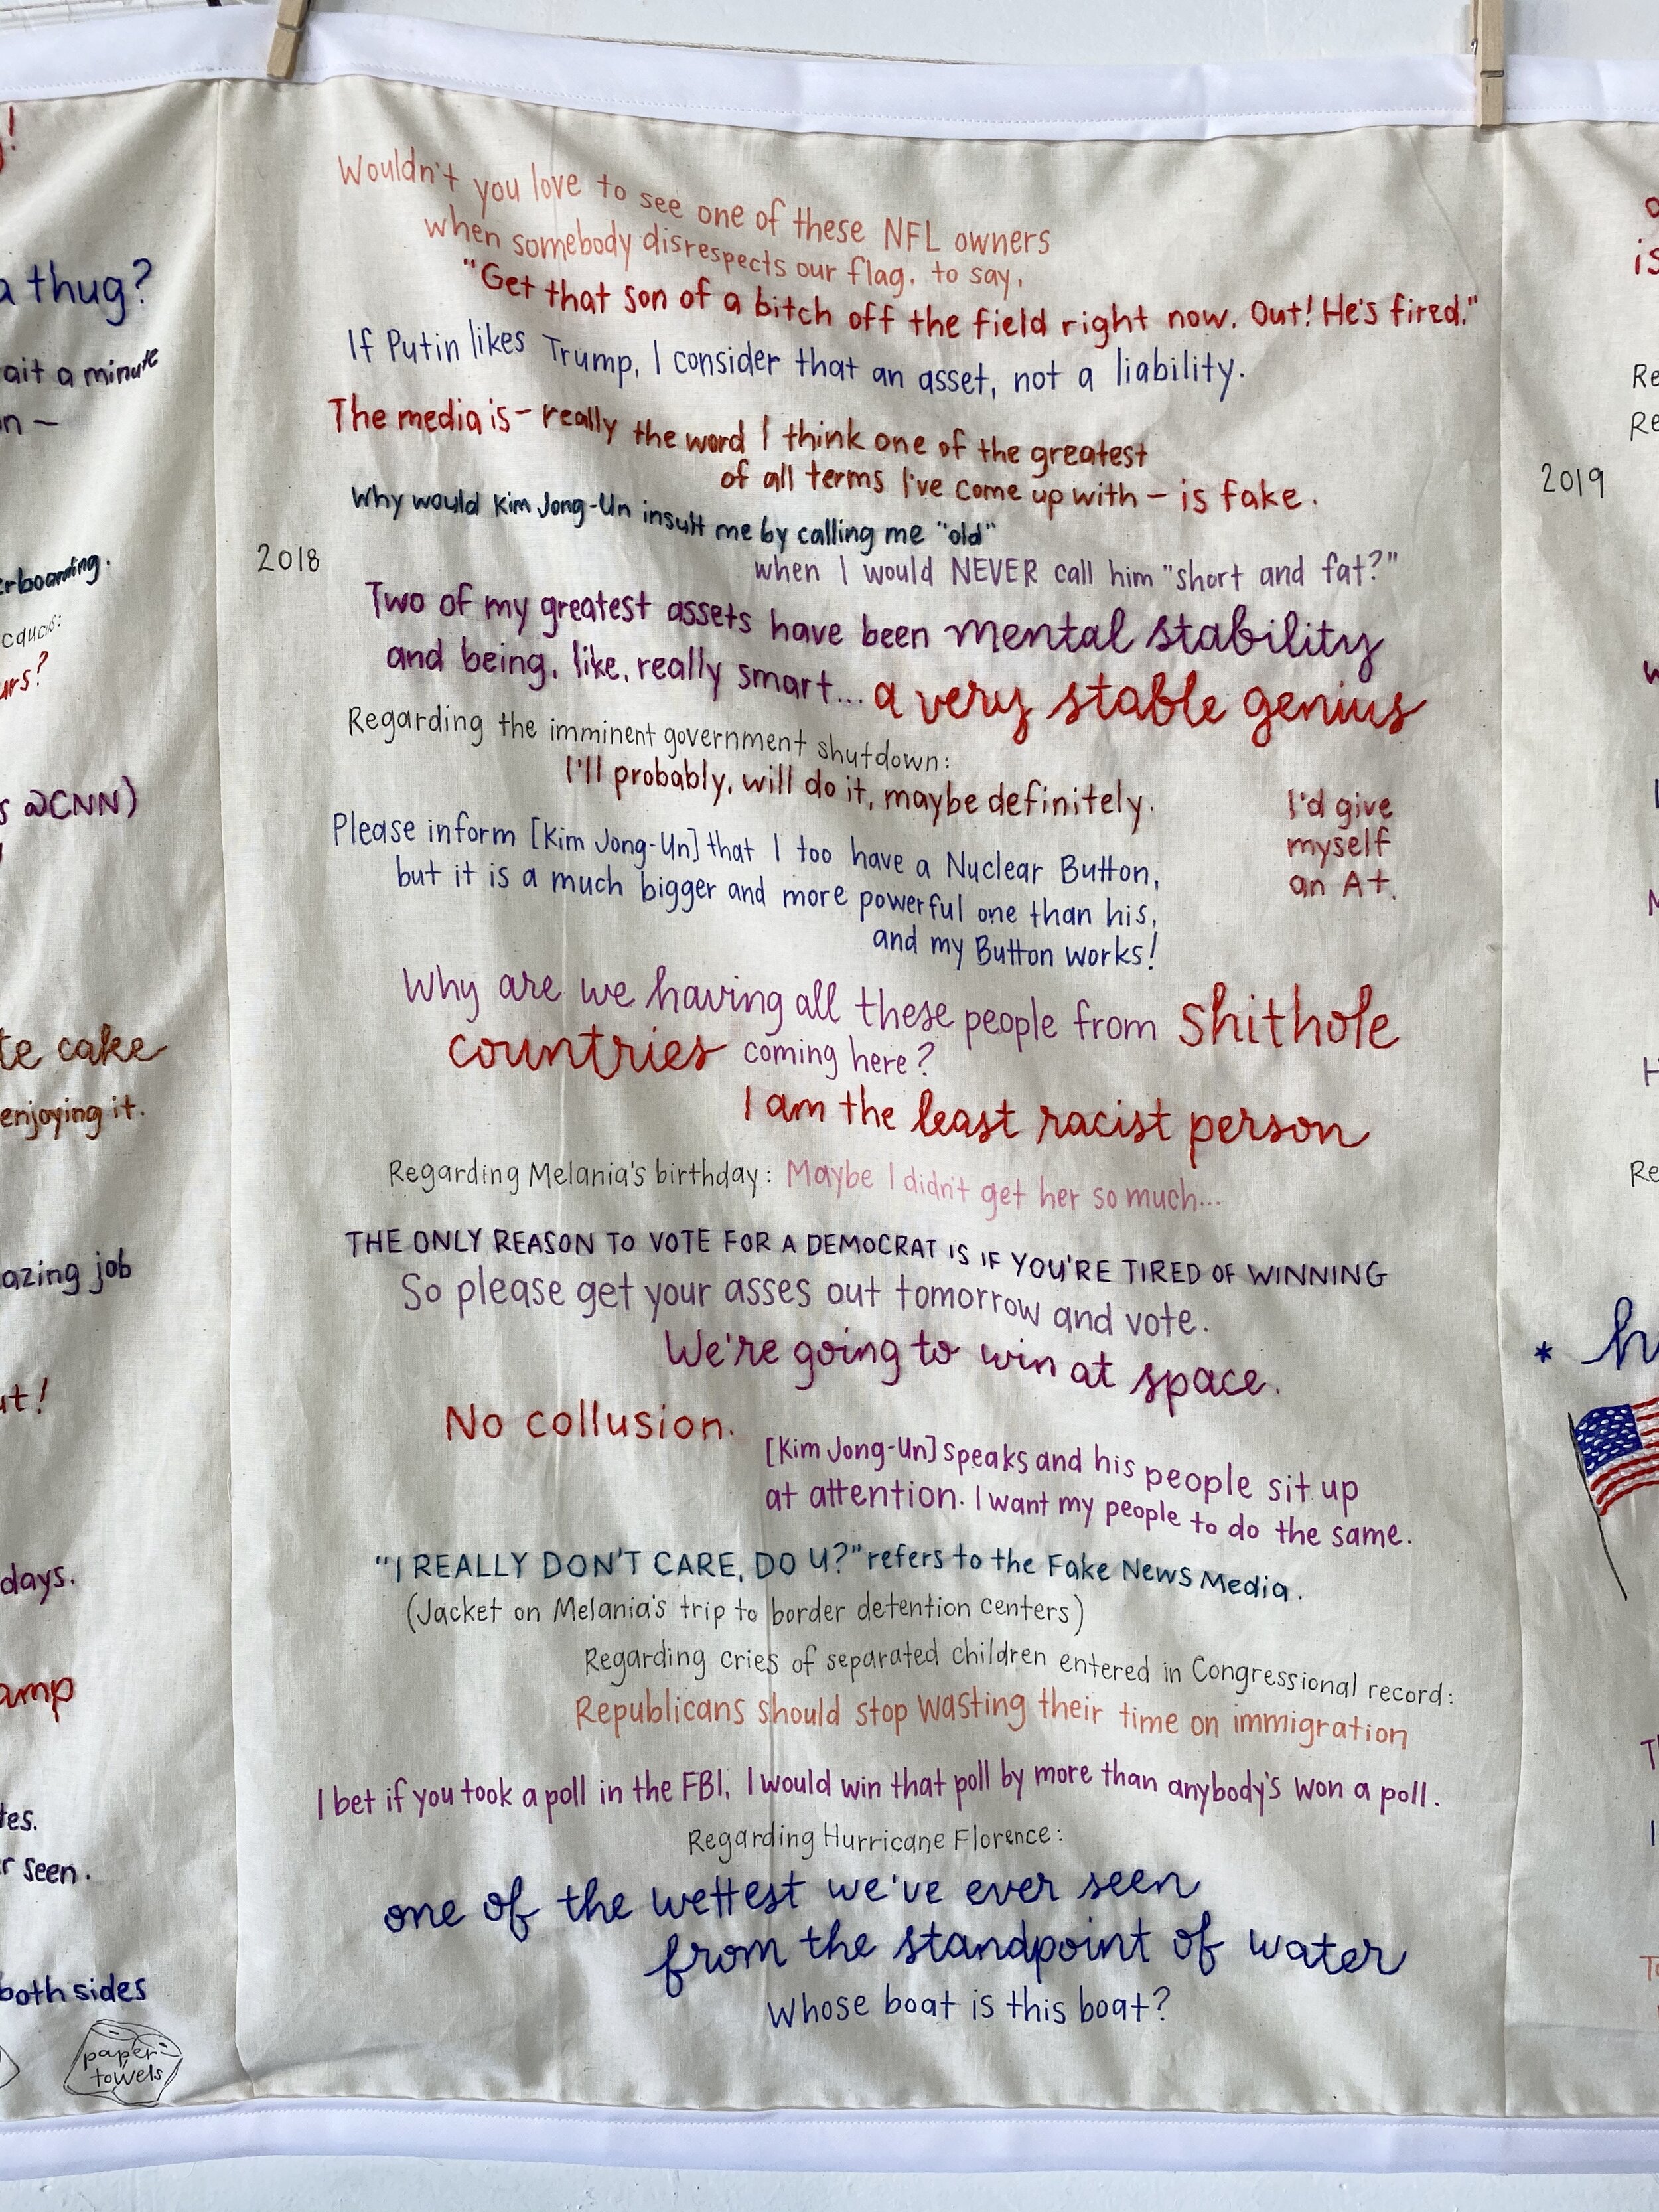 !
a thug?
ait a minute
n —
erboarding.
urs?
s @CNN)
te cake
enjoying it.
azing job
ut!
days.
amp
tes.
r seen.
both sides
paper
towels
2018
Wouldn't you love to see one of these NFL owners
when somebody disrespects our flag, to say,
"Get that son of a bitch off the field right now. Out! He's fired."
If Putin likes Trump, I consider that an asset, not a liability.
The media is – really the word I think one of the greatest
of all terms I've come up with – is fake.
Why would Kim Jong-Un insult me by calling me "old"
when I would NEVER call him "short and fat?"
Two of my greatest assets have been mental stability
and being, like, really smart... a very stable genius
Regarding the imminent government shutdown:
I'll probably, will do it, maybe definitely.
I'd give
myself
an A+.
Please inform [Kim Jong-Un] that I too have a Nuclear Button,
but it is a much bigger and more powerful one than his,
and my Button works!
Why are we having all these people from shithole
countries coming here?
I am the least racist person
Regarding Melania's birthday: Maybe I didn't get her so much...
THE ONLY REASON TO VOTE FOR A DEMOCRAT IS IF YOU'RE TIRED OF WINNING
So please get your asses out tomorrow and vote.
We're going to win at space.
No collusion.
[Kim Jong-Un] speaks and his people sit up
at attention. I want my people to do the same.
"I REALLY DON'T CARE, DO U?" refers to the Fake News Media.
(Jacket on Melania's trip to border detention centers)
Regarding cries of separated children entered in Congressional record:
Republicans should stop wasting their time on immigration
I bet if you took a poll in the FBI, I would win that poll by more than anybody's won a poll.
Regarding Hurricane Florence:
one of the wettest we've ever seen
from the standpoint of water
Whose boat is this boat?
is
Re
Re
2019
M
H
Re
* h